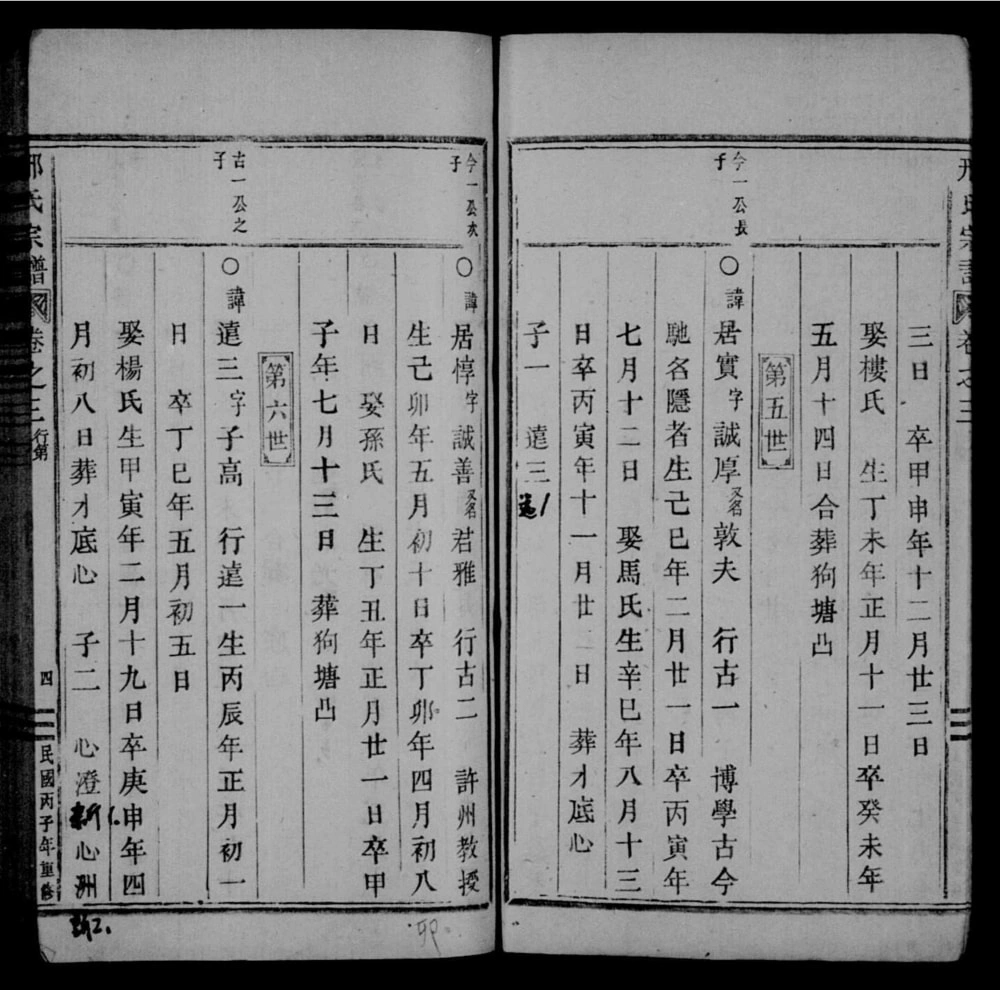 三日 卒甲申年十二月廿三日
娶樓氏 生丁未年正月十一日卒癸未年
五月十四日合葬狗塘凸
第五世
今一公長
子
○諱居實字誠厚又名敦夫 行古一 博學古今
馳名隱者生己巳年二月廿一日卒丙寅年
七月十二日 娶馬氏生辛巳年八月十三
日卒丙寅年十一月廿一日 葬才底心
子一 遠三
遠1
今一公次
子
○諱居惇字誠善又名君雅 行古二 許州教授
生己卯年五月初十日卒丁卯年四月初八
日 娶孫氏 生丁丑年正月廿一日卒甲
子年七月十三日 葬狗塘凸
第六世
古一公之
子
○諱遠三字子高 行遠一生丙辰年正月初一
日 卒丁巳年五月初五日
娶楊氏生甲寅年二月十九日卒庚申年四
月初八日葬才底心 子二 心澄新1.心洲
新2.
卯
氏宗譜 卷之三 行第 四 民國丙子年重修